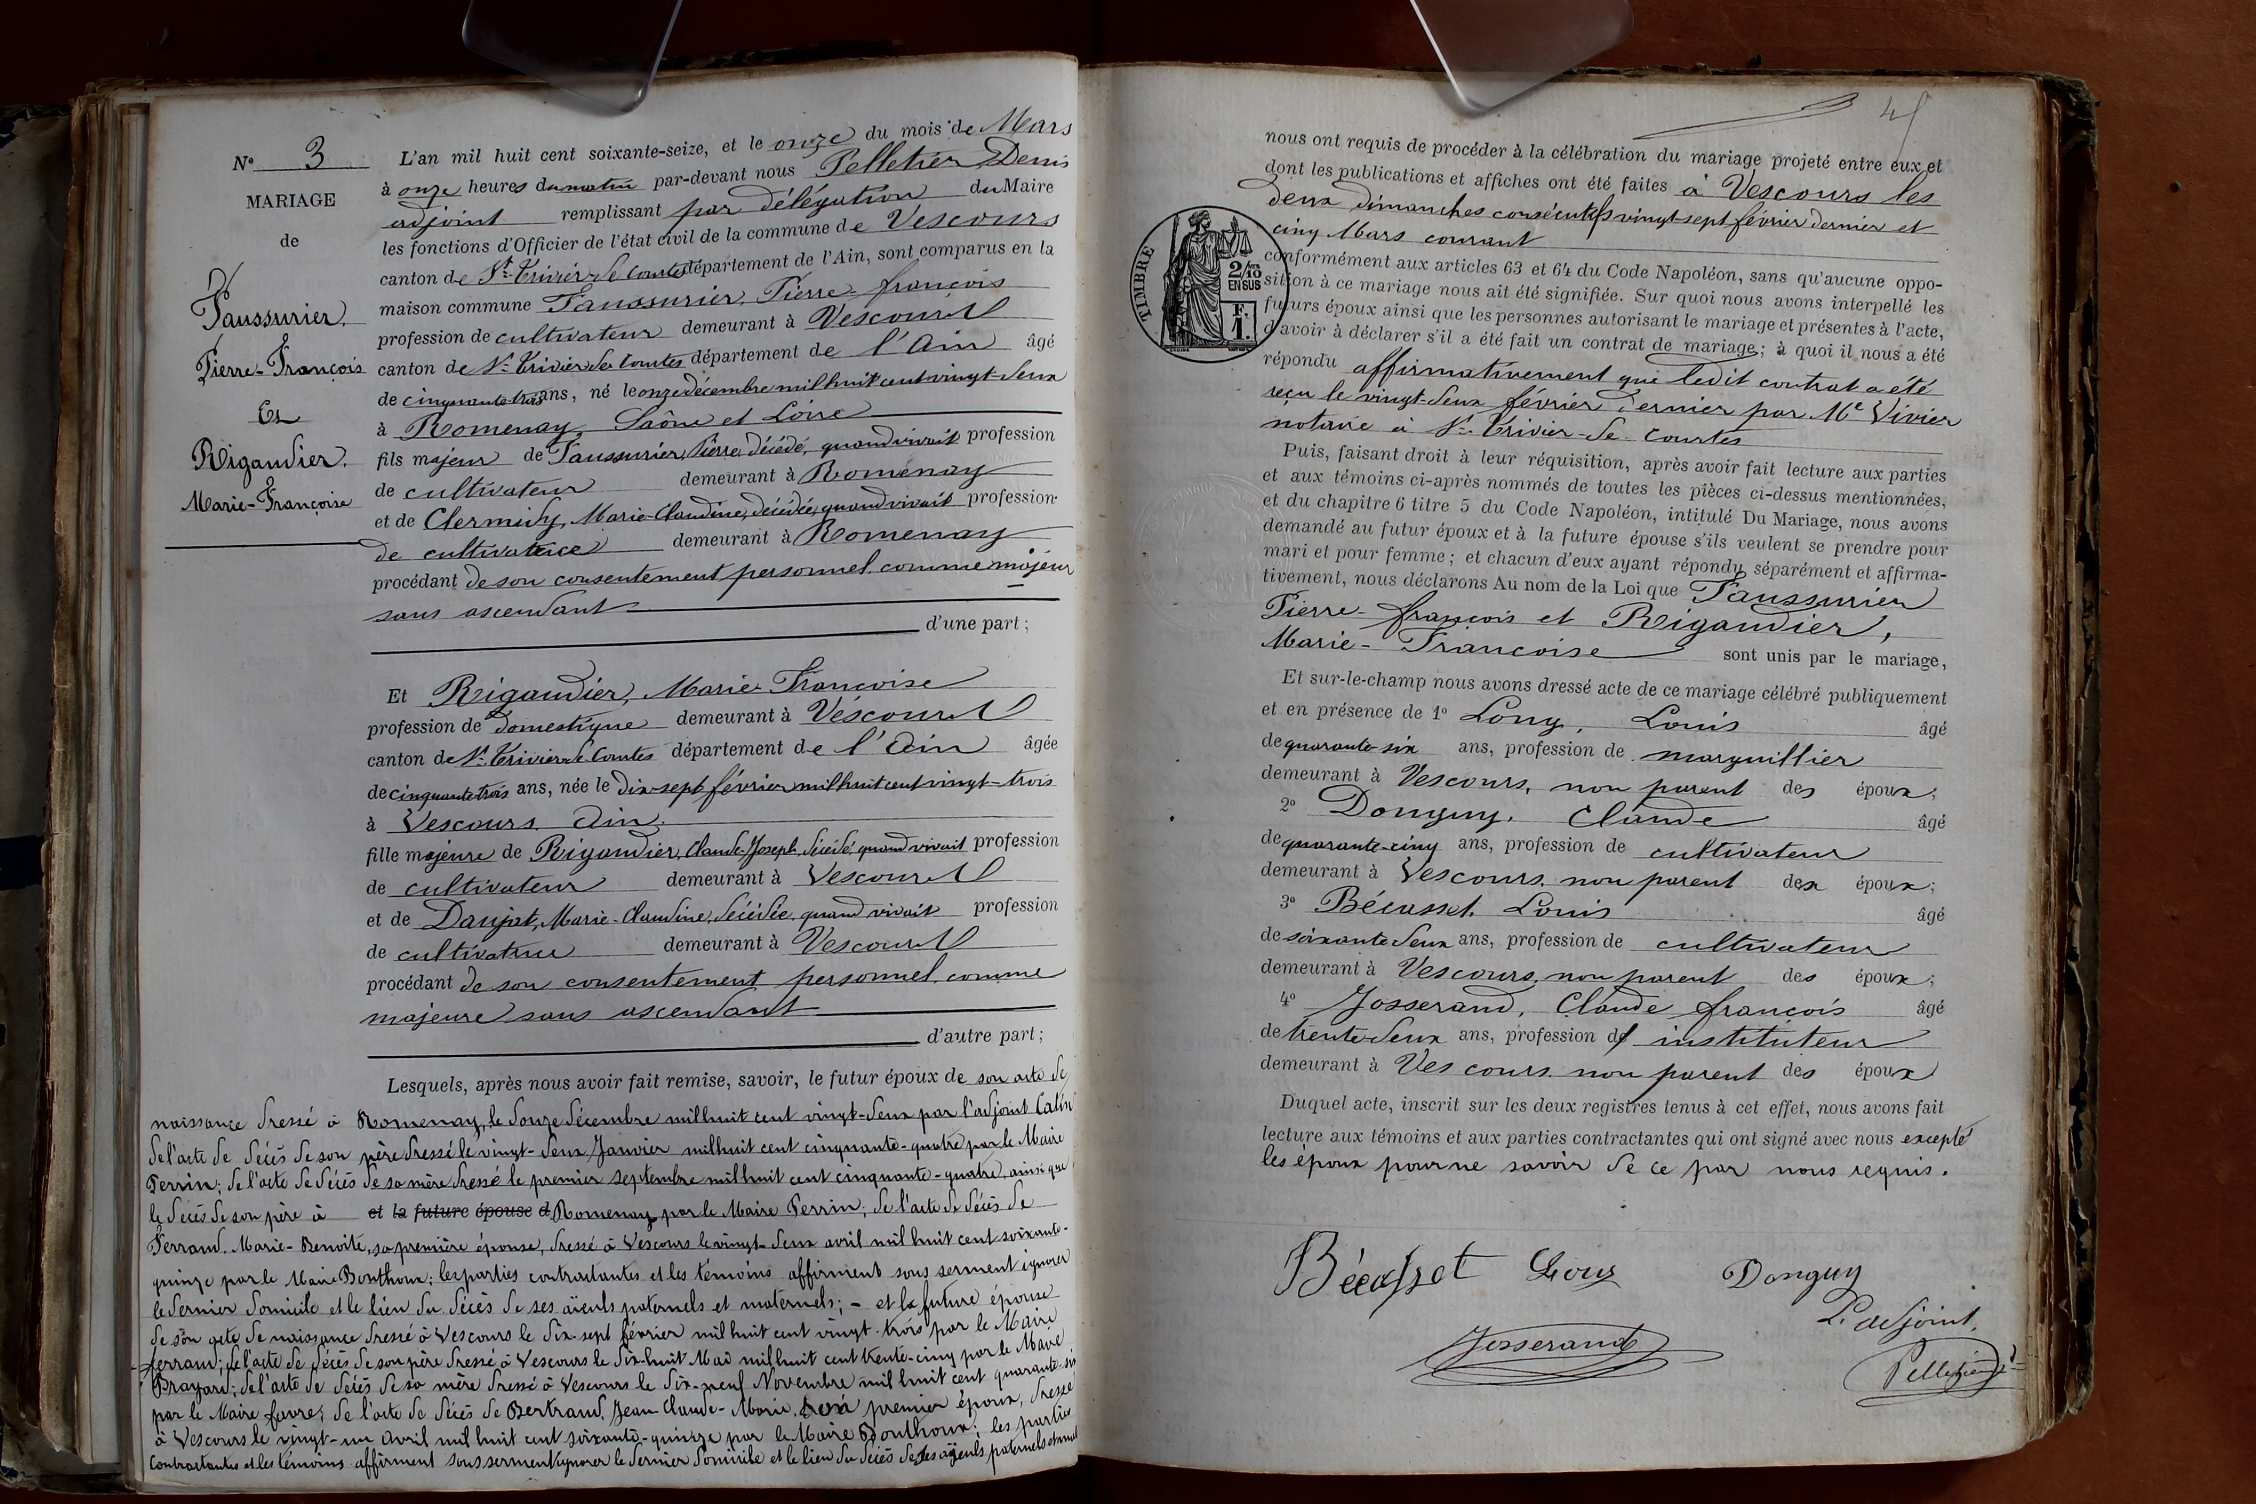 N° 3
MARIAGE
de
Faussurier,
Pierre-François
Et
Rigaudier,
Marie-Françoise
L'an mil huit cent soixante-seize, et le onze du mois de Mars
à onze heures du matin par-devant nous Pelletier Denis
adjoint remplissant par délégation du Maire
les fonctions d'Officier de l'état civil de la commune de Vescours
canton de St Trivier de Courtes département de l'Ain, sont comparus en la
maison commune Faussurier, Pierre-françois
profession de cultivateur demeurant à Vescours
canton de St Trivier de Courtes département de l'Ain âgé
de cinquante-trois ans, né le onze décembre mil huit cent vingt-deux
à Romenay Saône et Loire
fils majeur de Faussurier, Pierre, décédé, quand vivait profession
de cultivateur demeurant à Romenay
et de Clermidy, Marie-Claudine, décédée, quand vivait profession
de cultivatrice demeurant à Romenay
procédant de son consentement personnel comme majeur
sans ascendant
d'une part;
Et Rigaudier, Marie-Françoise
profession de domestique demeurant à Vescours
canton de St Trivier de Courtes département de l'Ain âgée
de cinquante trois ans, née le dix-sept février mil huit cent vingt-trois
à Vescours Ain.
fille majeure de Rigaudier, Claude-Joseph, décédé, quand vivait profession
de cultivateur demeurant à Vescours
et de Daujat, Marie-Claudine, décédée, quand vivait profession
de cultivatrice demeurant à Vescours
procédant de son consentement personnel comme
majeure sans ascendant
d'autre part;
Lesquels, après nous avoir fait remise, savoir, le futur époux de son acte de
naissance dressé à Romenay, le douze décembre mil huit cent vingt-deux par l'adjoint Catin
de l'acte de décès de son père dressé le vingt-deux Janvier mil huit cent cinquante-quatre par le Maire
Perrin; de l'acte de décès de sa mère dressé le premier septembre mil huit cent cinquante-quatre, ainsi que
le décès de son père à et la future épouse d Romenay par le Maire Perrin; de l'acte de décès de
Ferrand, Marie-Benoite, sa première épouse, dressé à Vescours le vingt-deux avril mil huit cent soixante-
quinze par le Maire Bonthoux; les parties contractantes et les témoins affirment sous serment ignorer
le dernier domicile et le lieu du décès de ses aïeuls paternels et maternels; - et la future épouse
de son acte de naissance dressé à Vescours le dix-sept février mil huit cent vingt-trois par le Maire
ferrand; de l'acte de décès de son père dressé à Vescours le dix-huit Mai mil huit cent trente-cinq par le Maire
Brayard; de l'acte de décès de sa mère dressé à Vescours le dix-neuf Novembre mil huit cent quarante-six
par le Maire favre; de l'acte de décès de Bertrand, Jean-Claude-Marie, son premier époux, dressé
à Vescours le vingt-un avril mil huit cent soixante-quinze par le Maire Bonthoux; les parties
contractantes et les témoins affirment sous serment ignorer le dernier domicile et le lieu du décès de ses aïeuls paternels et
nous ont requis de procéder à la célébration du mariage projeté entre eux et
dont les publications et affiches ont été faites à Vescours les
deux dimanches consécutifs vingt-sept février dernier et
cinq Mars courant
TIMBRE
2/10
EN SUS
F.
1.
conformément aux articles 63 et 64 du Code Napoléon, sans qu'aucune oppo-
sition à ce mariage nous ait été signifiée. Sur quoi nous avons interpellé les
futurs époux ainsi que les personnes autorisant le mariage et présentes à l'acte,
d'avoir à déclarer s'il a été fait un contrat de mariage; à quoi il nous a été
répondu affirmativement que ledit contrat a été
reçu le vingt-deux février dernier par Me Vivier
notaire à St Trivier-de-Courtes
Puis, faisant droit à leur réquisition, après avoir fait lecture aux parties
et aux témoins ci-après nommés de toutes les pièces ci-dessus mentionnées,
et du chapitre 6 titre 5 du Code Napoléon, intitulé Du Mariage, nous avons
demandé au futur époux et à la future épouse s'ils veulent se prendre pour
mari et pour femme; et chacun d'eux ayant répondu séparément et affirma-
tivement, nous déclarons Au nom de la Loi que Faussurier
Pierre-françois et Rigaudier,
Marie-Françoise sont unis par le mariage,
Et sur-le-champ nous avons dressé acte de ce mariage célébré publiquement
et en présence de 1° Louy, Louis âgé
de quarante-six ans, profession de marguillier
demeurant à Vescours, non parent des époux;
2° Donguy, Claude âgé
de quarante-cinq ans, profession de cultivateur
demeurant à Vescours, non parent des époux;
3° Bécasset, Louis âgé
de soixante-deux ans, profession de cultivateur
demeurant à Vescours, non parent des époux;
4° Josserand, Claude françois âgé
de trente-deux ans, profession d' instituteur
demeurant à Vescours, non parent des époux
Duquel acte, inscrit sur les deux registres tenus à cet effet, nous avons fait
lecture aux témoins et aux parties contractantes qui ont signé avec nous excepté
les époux pour ne savoir de ce par nous requis.
Bécasset Louy Donguy
L'adjoint,
Josserand
Pelletier